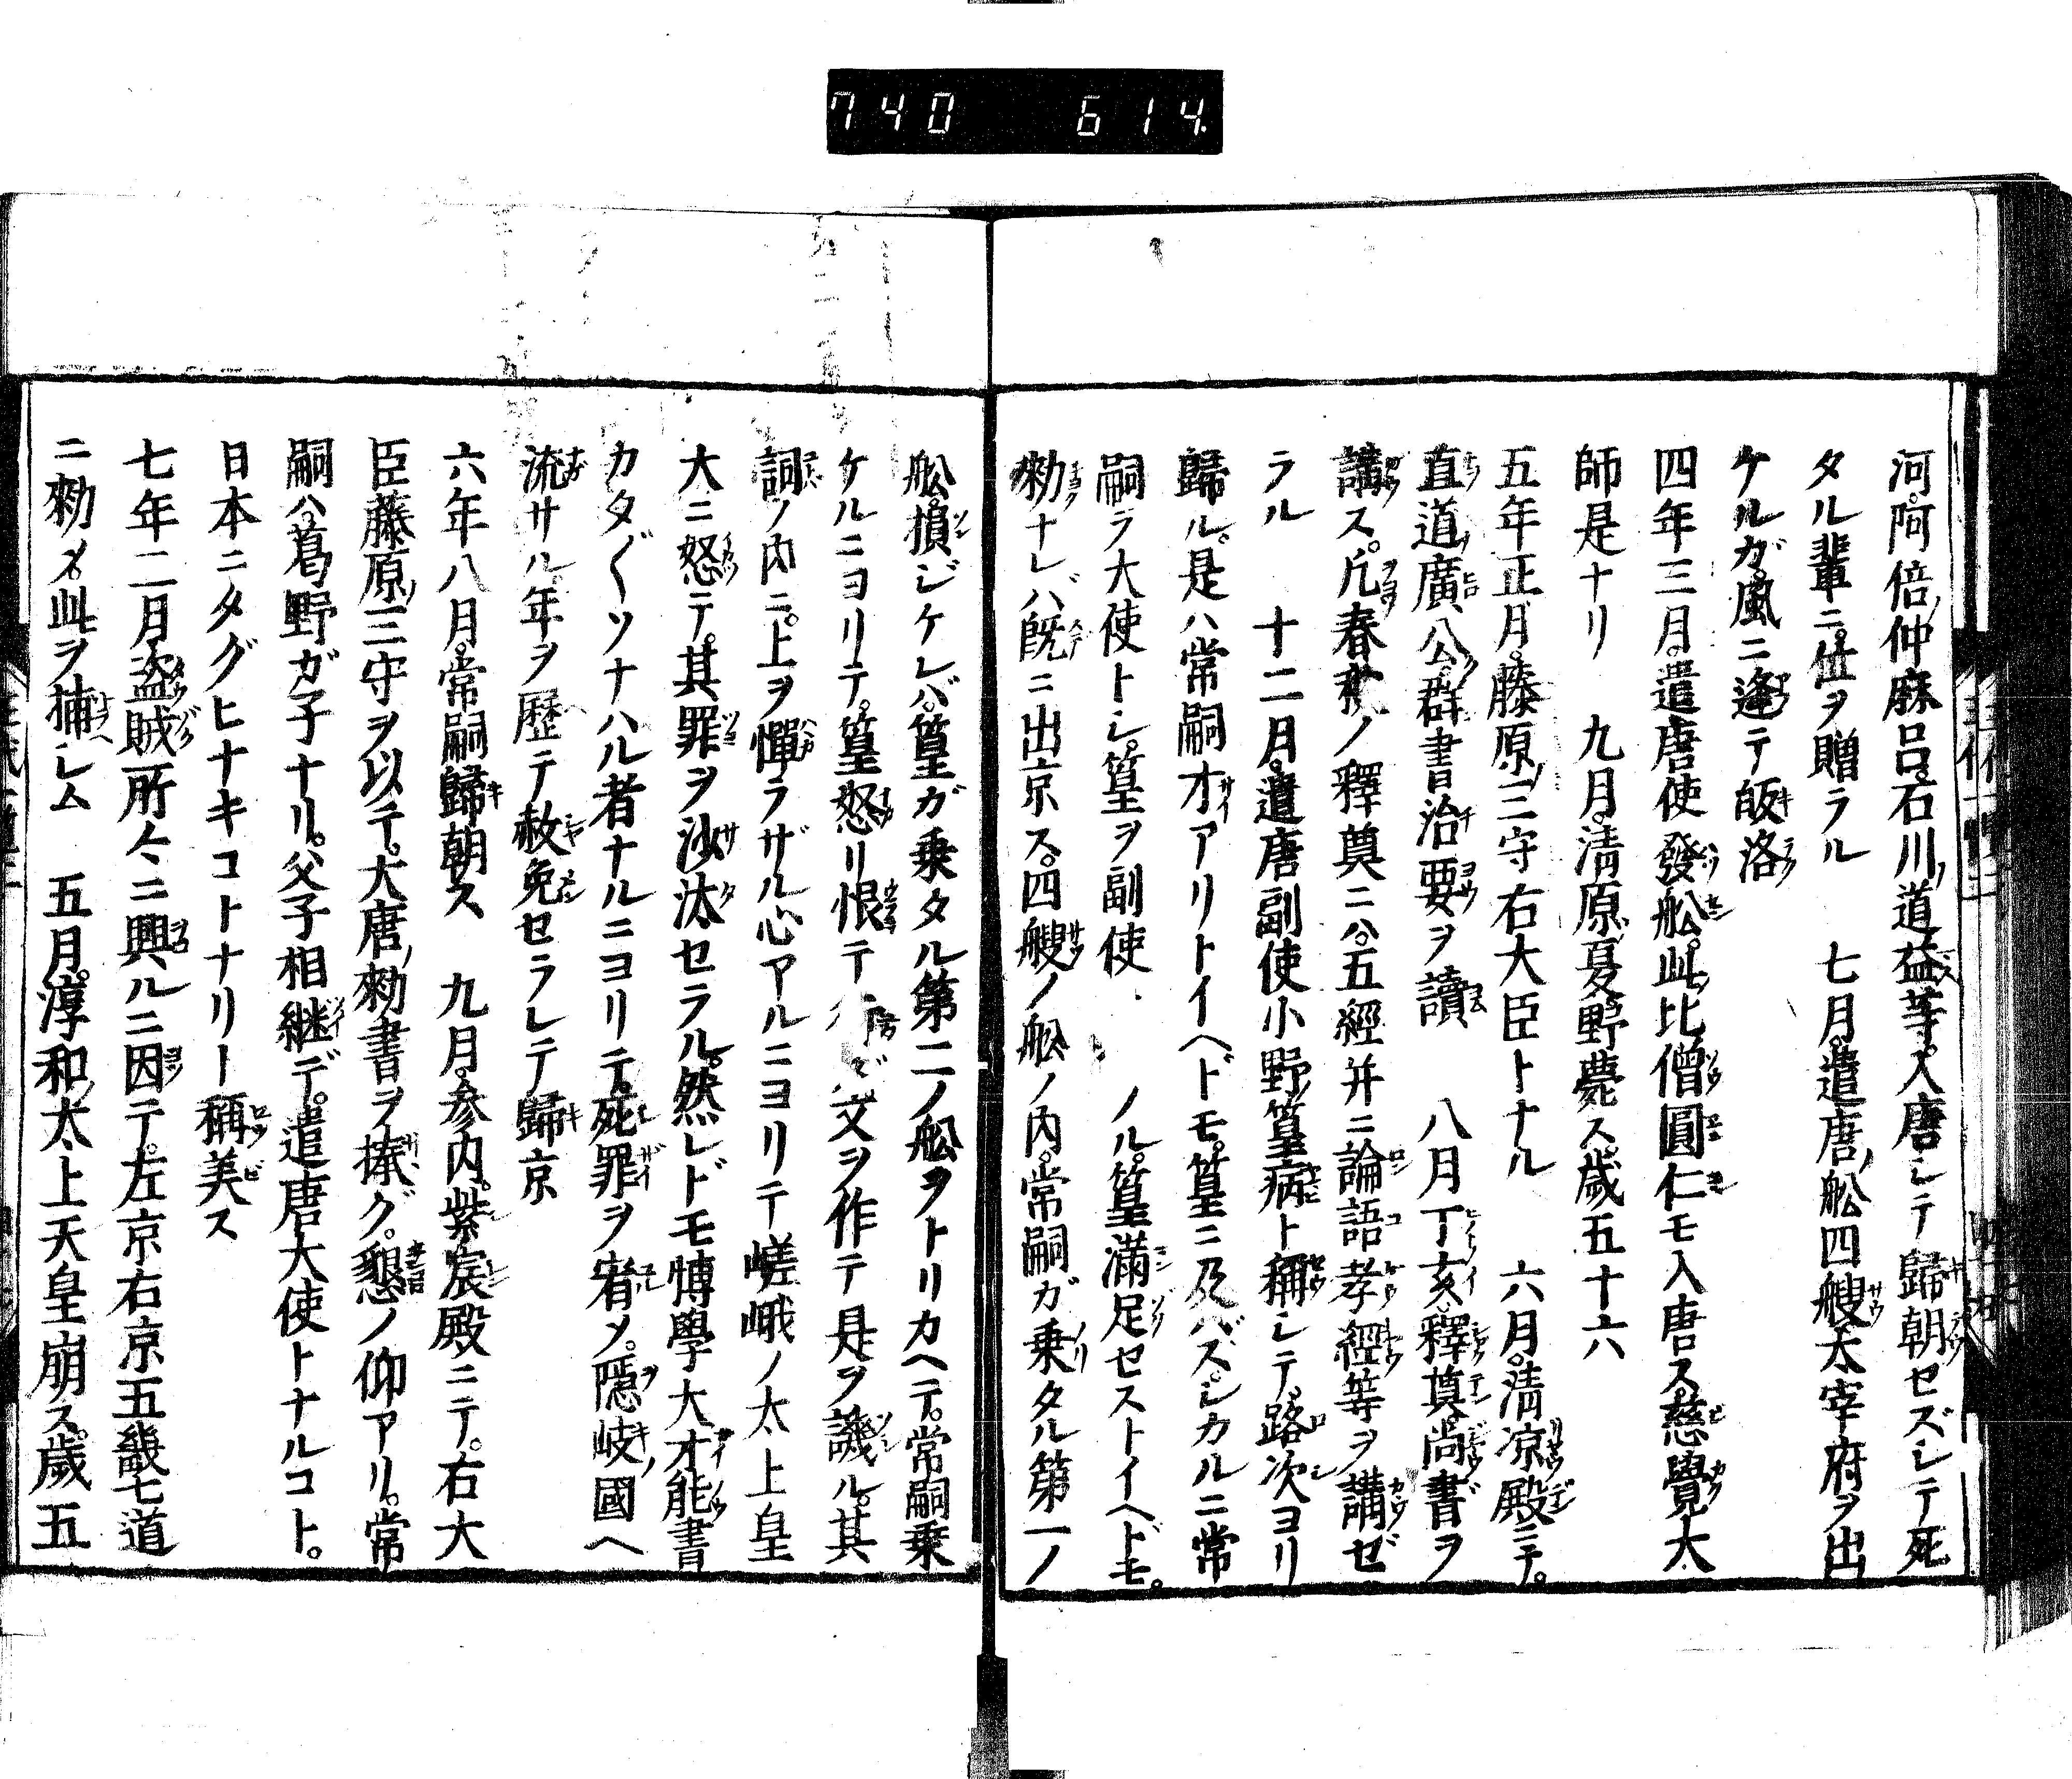 740 614
河。阿倍仲麻呂。石川道益等。入唐シテ歸朝セズシテ死
タル輩ニ。位ヲ贈ラル 七月。遣唐舩四艘。太宰府ヲ出
ケルガ。風ニ逢テ皈洛
四年三月。遣唐使發舩。此比僧圓仁モ入唐ス。慈覺大
師是ナリ 九月。清原夏野薨ス。歲五十六
五年正月。藤原三守右大臣トナル 六月。清凉殿ニテ。
直道廣公群書治要ヲ讀 八月丁亥。釋奠。尚書ヲ
講ス。凡春秋ノ釋奠ニハ。五經幷ニ論語孝經等ヲ講ゼ
ラル 十二月。遣唐副使小野篁病ト稱シテ。路次ヨリ
歸ル。是ハ常嗣才アリトイヘドモ。篁ニ及バズ。シカルニ常
嗣ヲ大使トシ。篁ヲ副使 ノル。篁滿足セストイヘドモ。
勅ナレバ既ニ出京ス。四艘ノ舩ノ内。常嗣ガ乗タル第一ノ
舩。損ジケレバ。篁ガ乗タル第二ノ舩ヲトリカヘテ。常嗣乗
ケルニヨリテ。篁怒リ恨テ 文ヲ作テ是ヲ譏ル。其
詞ノ内ニ。上ヲ憚ラザル心アルニヨリテ嵯峨ノ太上皇
大ニ怒テ。其罪ヲ沙汰セラル。然レドモ博學大才能書
カタ〴〵ソナハル者ナルニヨリテ。死罪ヲ宥メ。隱岐國ヘ
流サル年ヲ歷テ赦免セラレテ歸京
六年八月。常嗣歸朝ス 九月。参内。紫宸殿ニテ。右大
臣藤原三守ヲ以テ。大唐勅書ヲ捧グ。懇ノ仰アリ。常
嗣ハ葛野ガ子ナリ。父子相継デ。遣唐大使トナルコト。
日本ニタグヒナキコトナリト稱美ス
七年二月。盗賊所々ニ興ルニ因テ。左京右京五畿七道
ニ勅メ。此ヲ捕シム 五月。淳和太上天皇崩ス。歲五